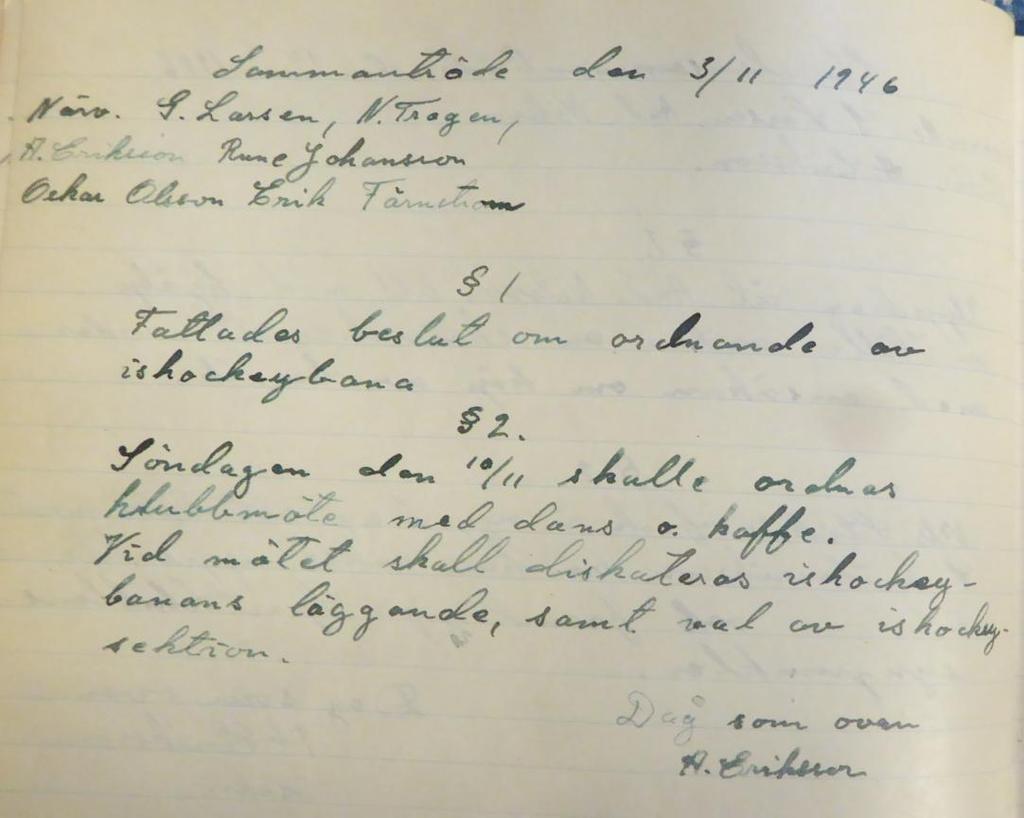 Sammanträde den 3/11 1946
Närv. G. Larsen, N. Tragen,
A. Eriksson Rune Johansson
Oskar Olsson Erik Färnstrom
§ 1
Fattades beslut om ordnande av
ishockeybana
§ 2.
Söndagen den 10/11 skulle ordnas
klubbmöte med dans o. kaffe.
Vid mötet skall diskuteras ishockey-
banans läggande, samt val av ishockey-
sektion.
Dag som ovan
A. Eriksson